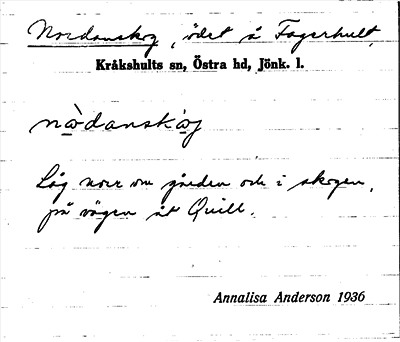 Nordanskog, ödet å Fagerhult,
Kråkshults sn, Östra hd, Jönk. l.
nò̱danskò̱g
Låg norr om gården och i skogen,
på vägen åt Quill.
Annalisa Anderson 1936